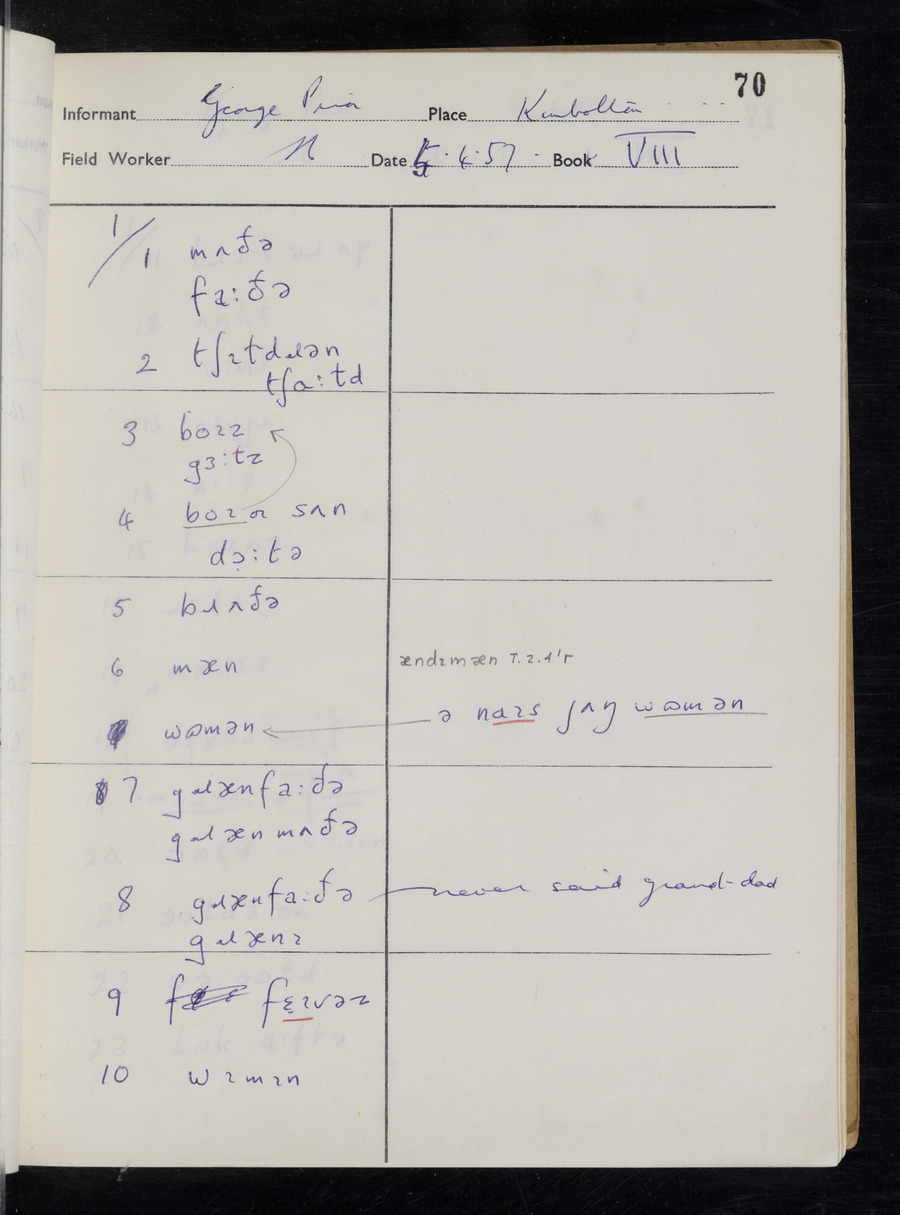 70
Informant George Prior Place Kimbolton
Field Worker N Date 5.4.57 Book VIII
1/
1 mʌðə
fa:ðə
2 tʃɪɫdɹən
tʃa:ɫd
3 bɔɪz
gɜ:ɫz
4 bɔɪ ɒɪ sʌn
dɔ:tə
5 bɹʌðə
6 mæn
ændɪmæn T.2.4'r
wɷmən
ə naɪs jʌŋ wɷmən
7 gɹænfa:ðə
gɹænmʌðə
8 gɹænfa:ðə never said grand-dad
gɹænɪ
9 fɛɪvəɹ
10 wɪmɪn